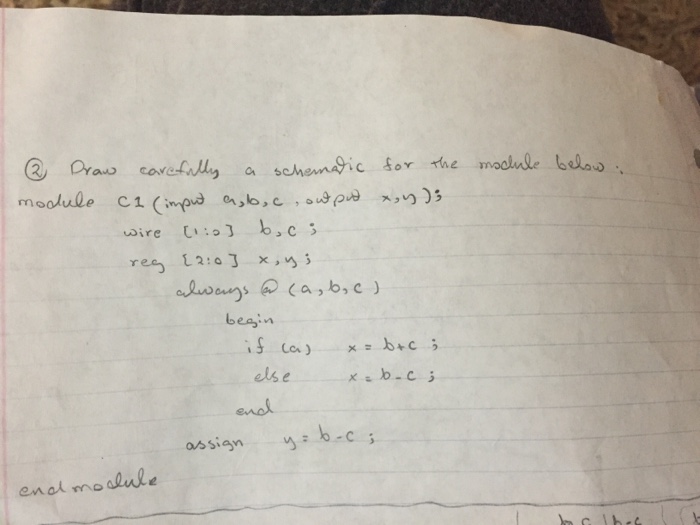 ② Draw carefully a schematic for the module below:
module C1 (input a,b,c, output x,y);
wire [1:0] b,c;
reg [2:0] x,y;
always @ (a,b,c)
begin
if (a) x = b+c;
else x = b-c;
end
assign y = b-c;
endmodule